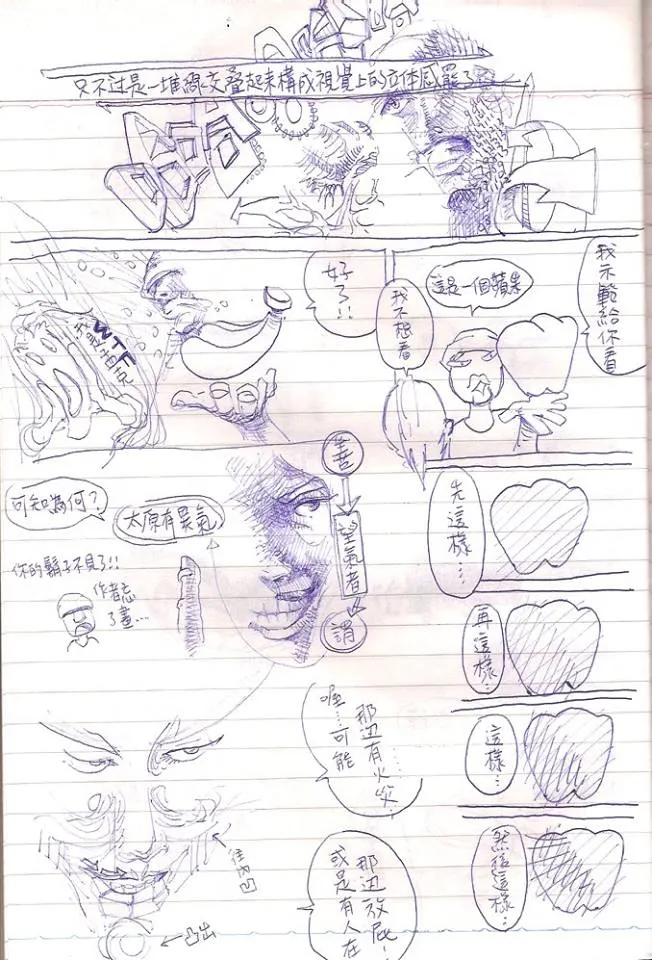 只不过是一堆線交疊起來構成視覺上的立体感罷了
我示範給你看
這是一個蘋果
我不想看
好了!!
WTF
先這樣…
再這樣…
這樣…
然後這樣…
善
望氣者
謂
太原有異氣
可知為何?
你的鬍子不見了!!
作者忘
了畫…
那边有火災…
喔…可能
那边放屁!
或是有人在
往內凹
凸出